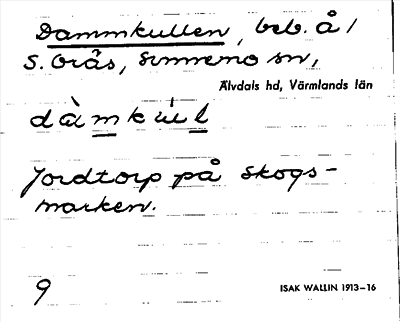 Dammkullen, beb. å 1
S. Örås, Sunnemo sn,
Älvdals hd, Värmlands län
dàmkúl
Jordtorp på skogs-
marken.
9
ISAK WALLIN 1913–16